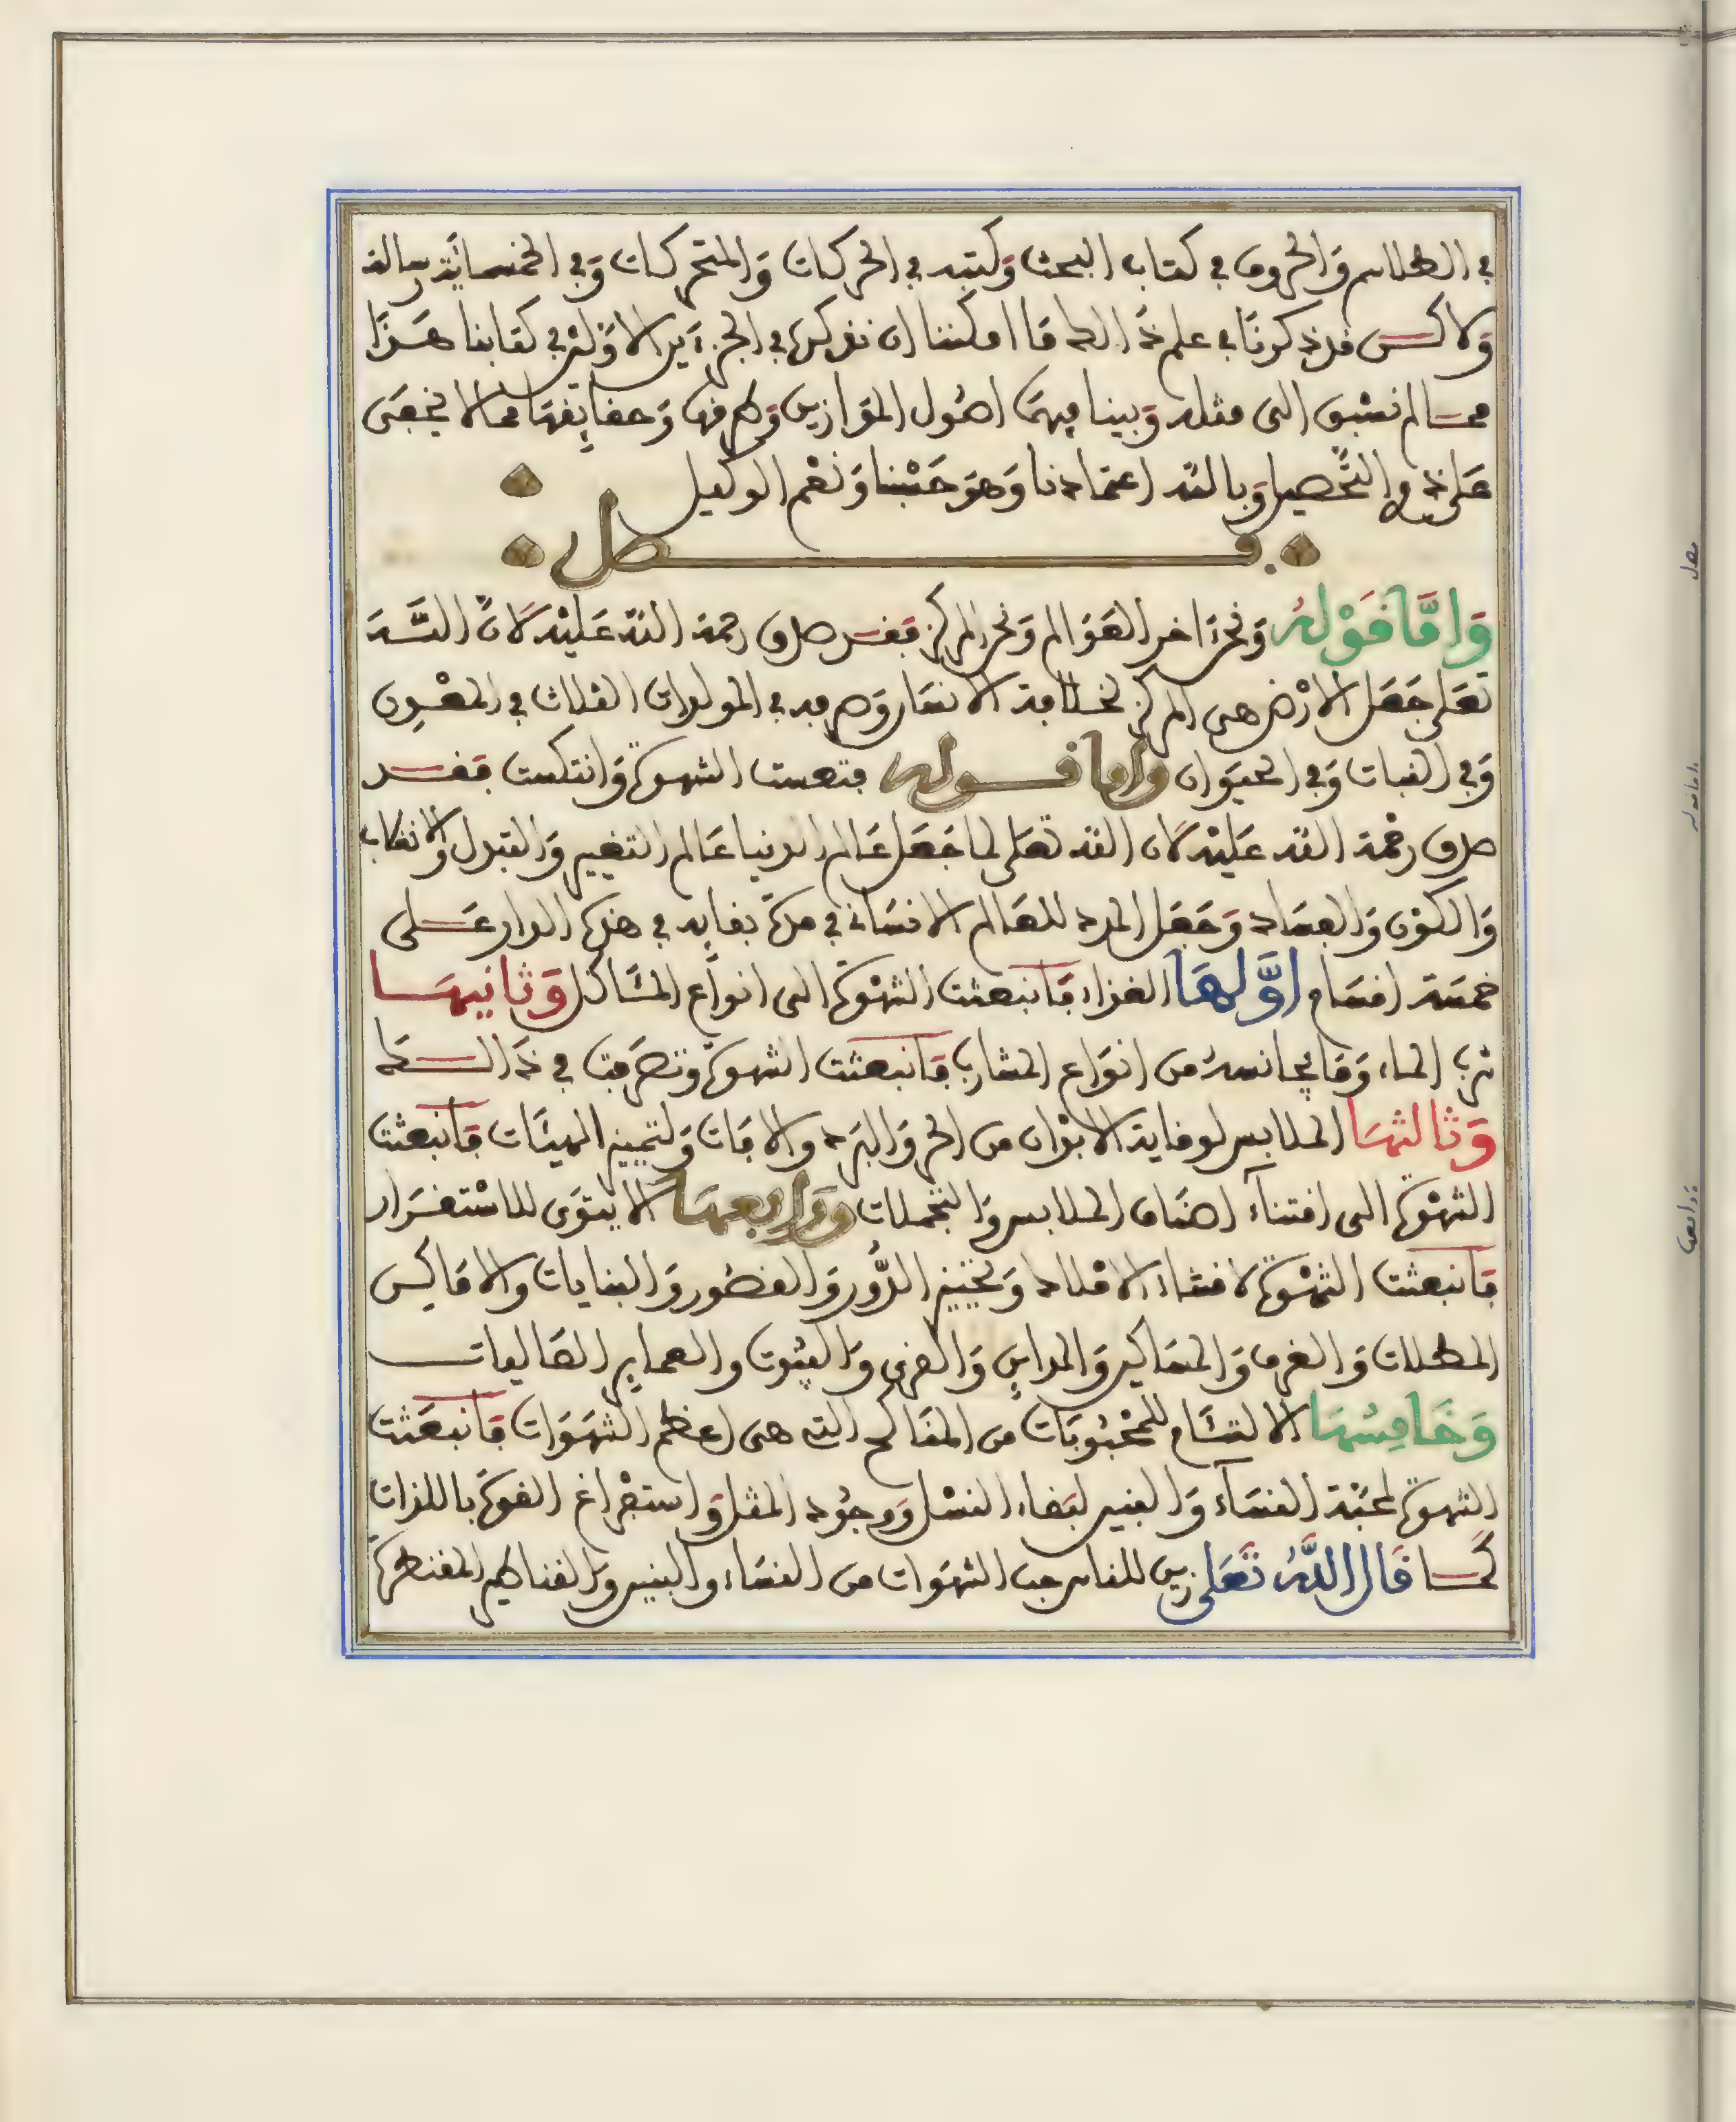 في الطلاسم والحروف في كتاب البحث وكتبه في الحركات والمتحركات وفي الخمسمائة رسالة
ولاكن قد ذكرنا في علم ذالك ما امكننا ان نذكره في الجزءين الاولين في كتابنا هذا
مما لم نسبق الى مثله وبينا فيهما اصول الموازين وطرقها وحقايقها مما لا يخفى
على ذوي التحصيل وبالله اعتمادنا وهو حسبنا ونعم الوكيل
فصل
واما قوله ونحن ءاخر العوالم ونحن المركز فقد صدق رحمة الله عليه لان الله
تعلى جعل الارض هي المركز لخلافة الانسان وصرفه في المولدات الثلاث في المعدن
وفي النبات وفي الحيوان واما قوله فتعست الشهوة وانتكست فقد
صدق رحمة الله عليه لان الله تعلى لما جعل عالم الدنيا عالم التغيير والتبدل والانقلاب
والكون والفساد وجعل المدد للعالم الانساني في مدة بقايه في هذه الدار على
خمسة اقسام اولها الغذاء فانبعثت الشهوة الى انواع المئاكل وثانيها
شرب الماء وما يجانسه من انواع المشارب فانبعثت الشهوة وتصرفت في ذالك
وثالثها الملابس لوقاية الابدان من الحر والبرد والافات ولتمييز الهيئات فانبعثت
الشهوة الى اقتناء اصناف الملابس والتجملات ورابعها الايتوى للاستقرار
فانبعثت الشهوة لاقتناء الاملاك وتخيير الدور والقصور والبنايات والاماكن
المطلات والغرف والمساكن والمداين والقرى والبيوت والعماير العاليات
وخامسها الالتئام للمحبوبات من المناكح التي هي اعظم الشهوات فانبعثت
الشهوة لمحبة النساء والبنين لبقاء النسل ووجود المثل واستفراغ القوة باللذات
كما قال الله تعلى زين للناس حب الشهوات من النساء والبنين والقناطير المقنطرة
فصل
واما قوله
ورابعها